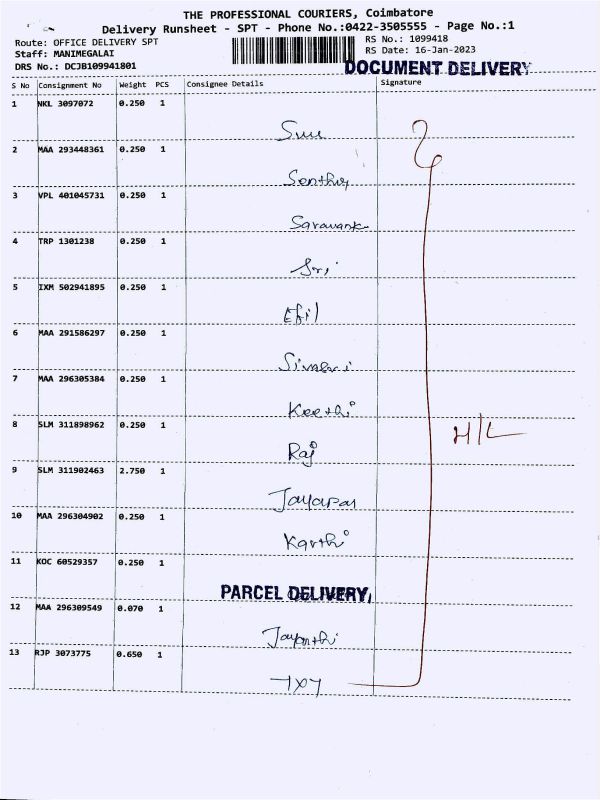 THE PROFESSIONAL COURIERS, Coimbatore
Delivery Runsheet - SPT - Phone No.:0422-3505555 - Page No.:1
Route: OFFICE DELIVERY SPT
Staff: MANIMEGALAI
DRS No.: DCJB109941801
RS No.: 1099418
RS Date: 16-Jan-2023
DOCUMENT DELIVERY
S No Consignment No Weight PCS Consignee Details Signature
1 NKL 3097072 0.250 1
2 MAA 293448361 0.250 1
3 VPL 401045731 0.250 1
Saravank
4 TRP 1301238 0.250 1
Sri
5 IXM 502941895 0.250 1
6 MAA 291586297 0.250 1
7 MAA 296305384 0.250 1
Keethi
8 SLM 311898962 0.250 1
Raj
H/L
9 SLM 311902463 2.750 1
10 MAA 296304902 0.250 1
Karthi
11 KOC 60529357 0.250 1
PARCEL DELIVERY
12 MAA 296309549 0.070 1
Jayanthi
13 RJP 3073775 0.650 1